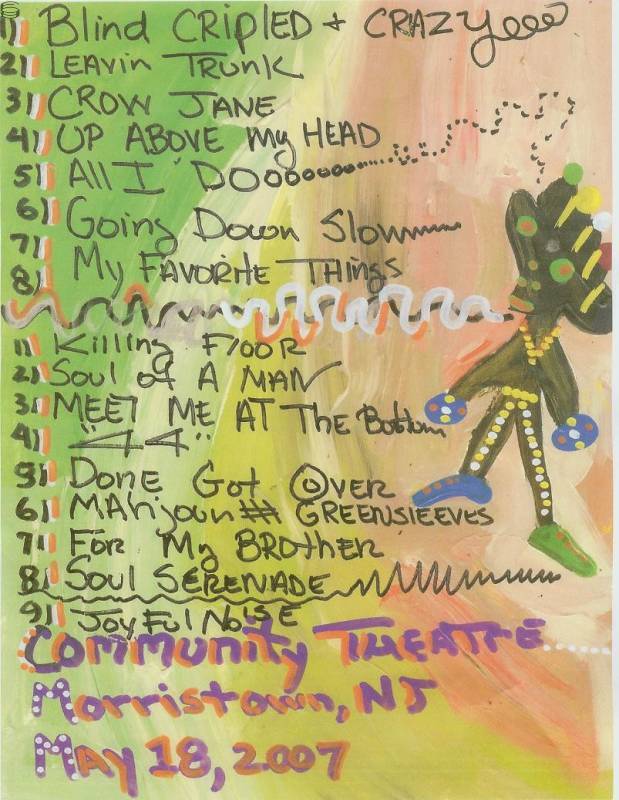 1) Blind CRipLED + CRAZY
2) LEAVIN TRUNK
3) CROW JANE
4) UP ABOVE My HEAD
5) All I DOooooooo
6) Going Down Slow
7) My FAVORITE THings
8)
1) Killing Floor
2) Soul of A MAN
3) MEET ME AT The Bottom
4) "44"
5) DONE Got OVER
6) MAhjoun # GREENSlEEVES
7) FOR My BROTHER
8) Soul SERENADE
9) JOYFul NoiSE
Community THEATRE
Morristown, NJ
May 18, 2007